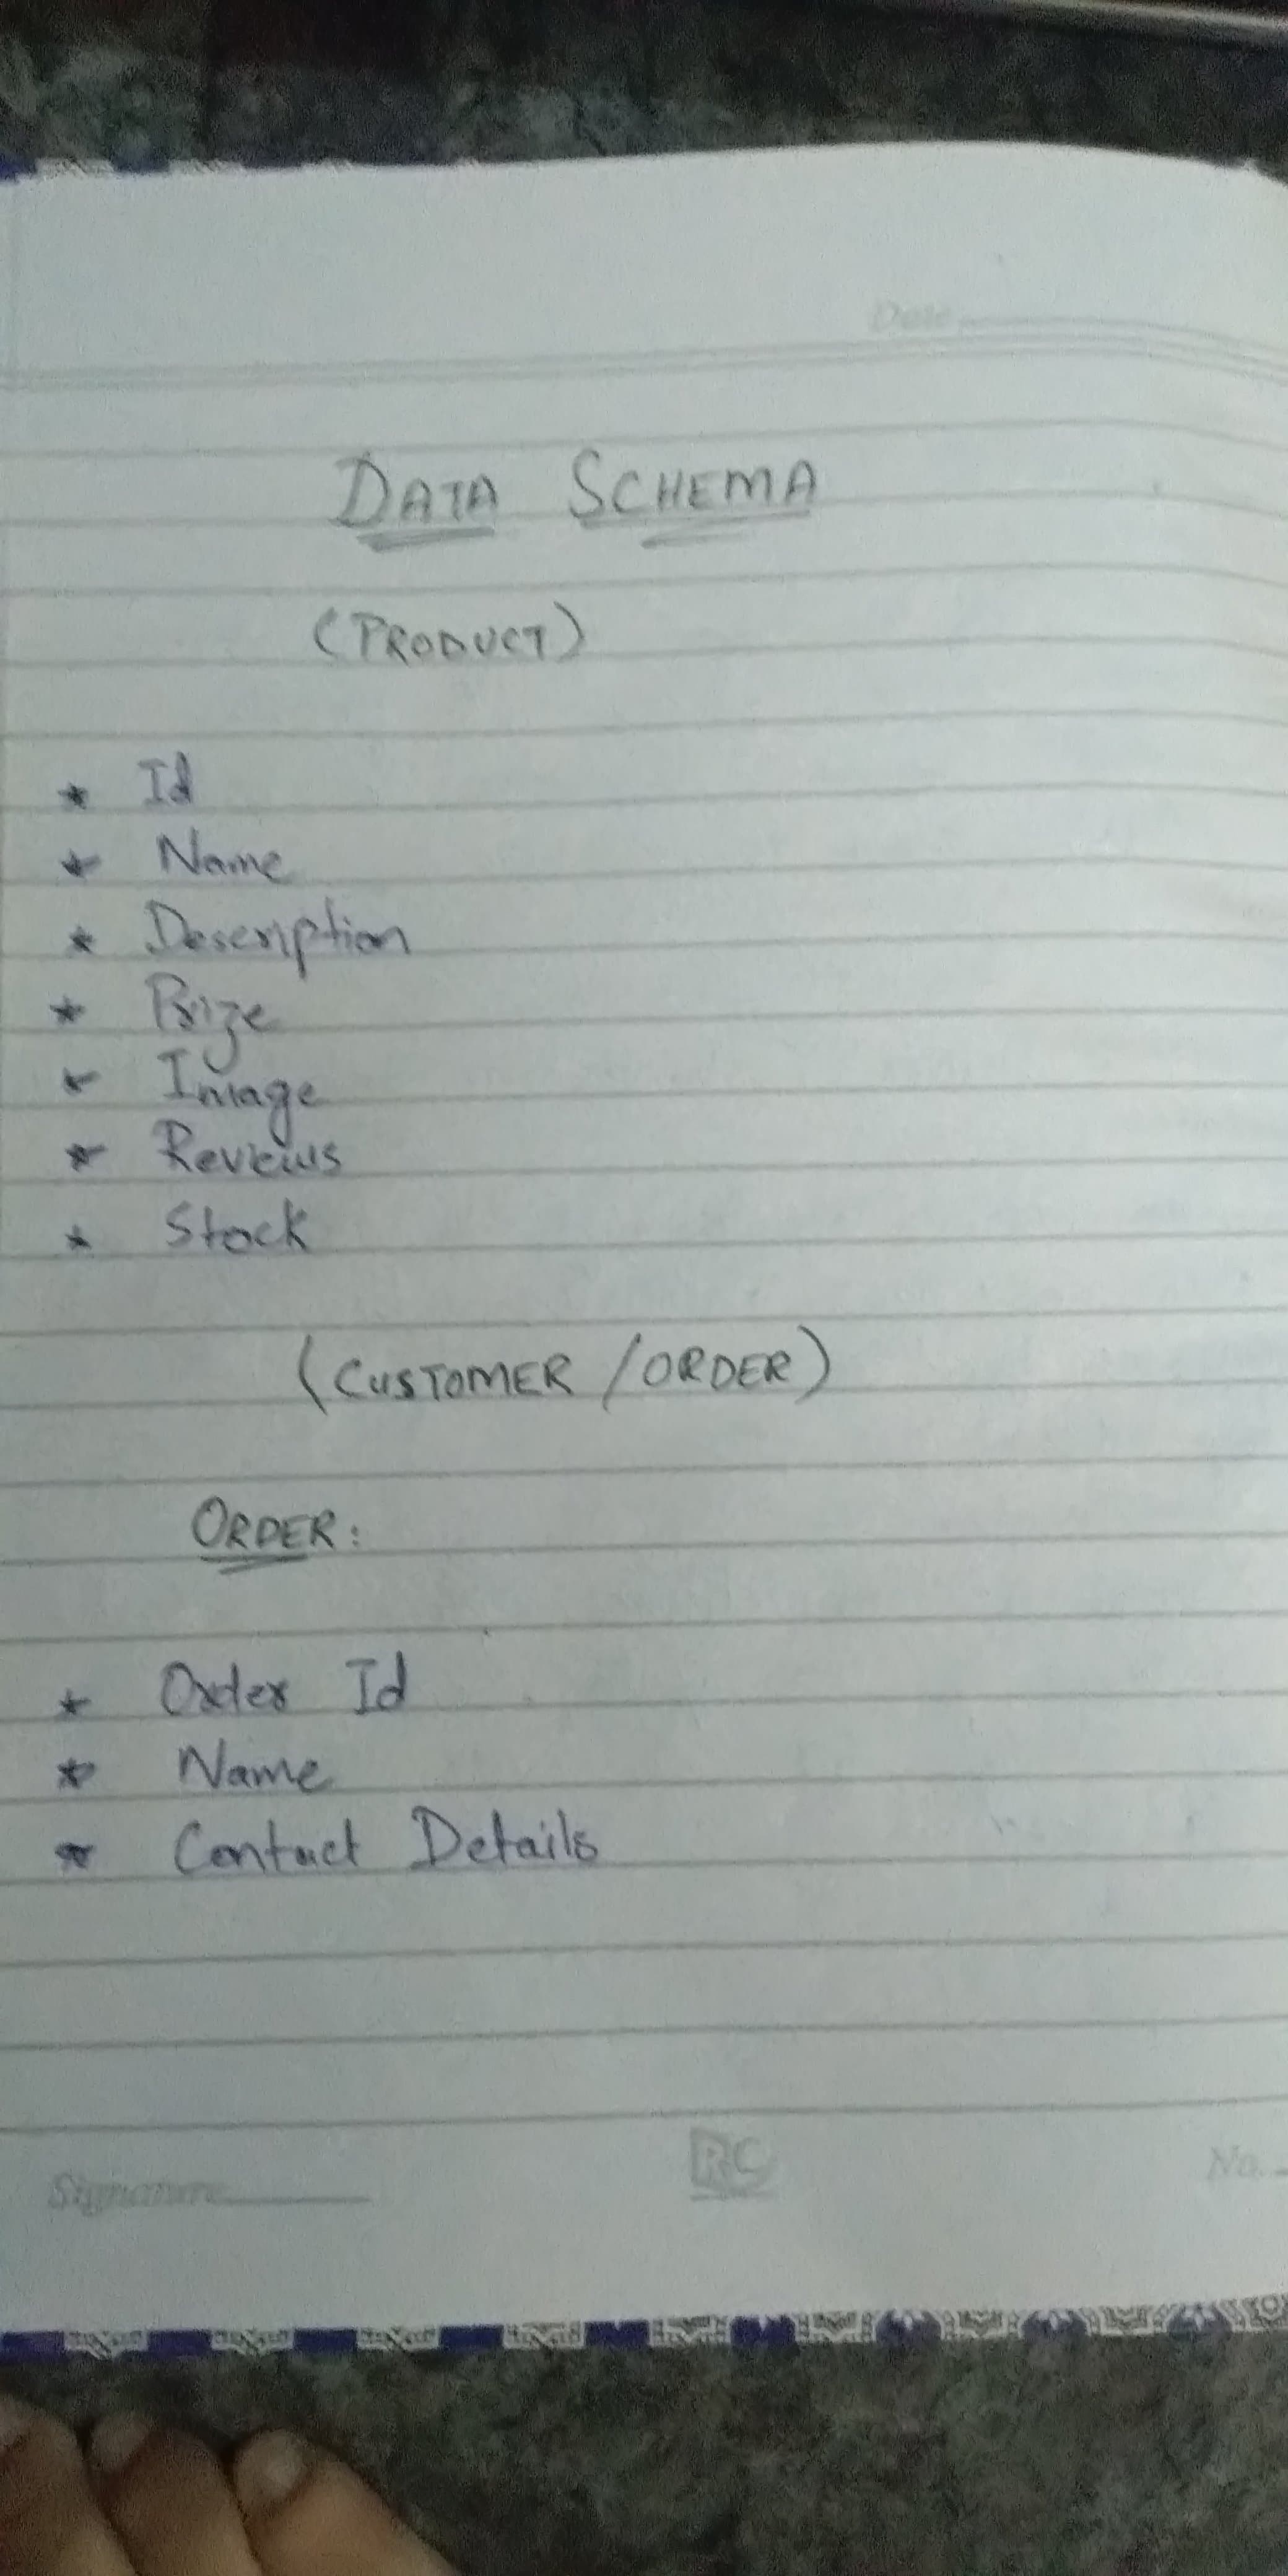 Date
DATA SCHEMA
(PRODUCT)
* Id
* Name
* Description
* Prize
* Image
* Reviews
* Stock
(CUSTOMER / ORDER)
ORDER:
* Order Id
* Name
* Contact Details
Signature RC No.